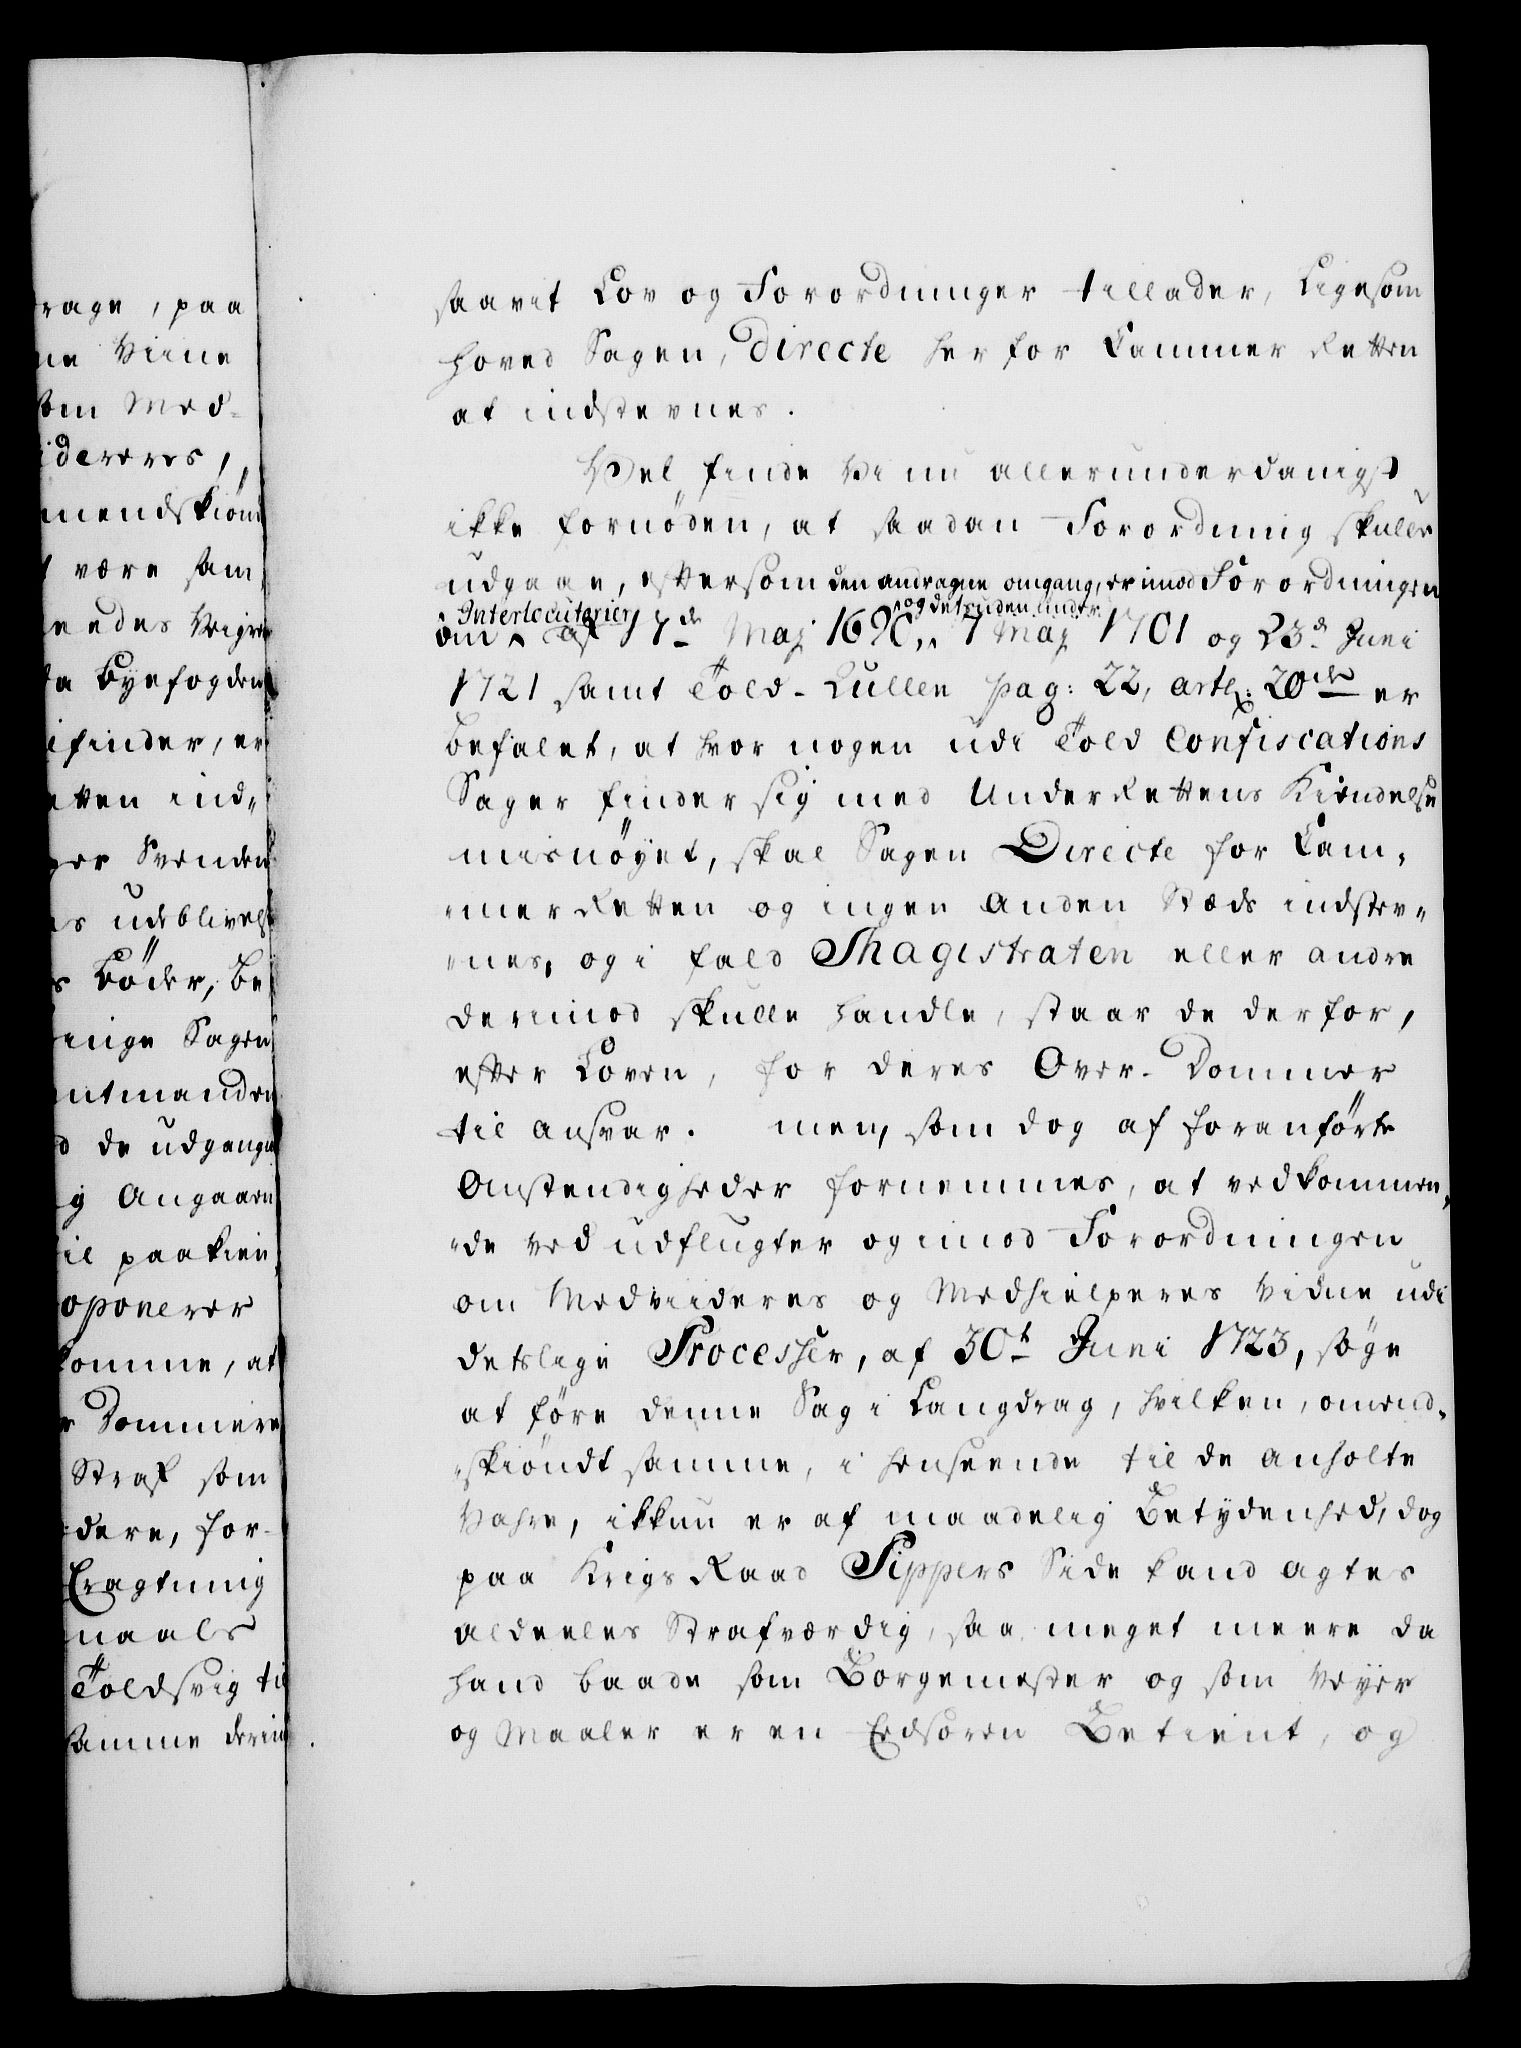 rage, paa
ne Viine
som Med-
idereres,
mendskiönt
t være sam
eedes Veigre
da Byefogden
ifinder, er
etten ind-
ger Svenden
es udeblivelse
s Böder, be
inge Sagen
mtmanden
d de udgangne
g Angaaen
il paakien
oponerer
komme, at
r Dommere
Straf som
dere, for-
Eragtning
maals
Toldsvig til
samme derim
saavit Lov og Forordninger tillader, Ligesom
hoved Sagen, Directe her for Cammer Retten
at indstevnes.
Vel finde Vi nu allerunderdanigst
ikke fornöden, at saadan Forordning skulle
udgaae, eftersom den andragne omgang, er imod Forordningen
Interlocutorier og det, uden under
om af 17de Maj 1690,, 7 Maj 1701 og 23de Juni
1721 samt Told-Rullen pag: 22, artl: 20de er
befalet, at hvor nogen udi Told Confiscations
Sager finder sig med UnderRettens Kiendelse
misnöyet, skal Sagen Directe for Cam,
"merRetten og ingen anden Stæds indstev"
"nes, og i fald Magistraten eller andre
derimod skulle handle, staar de derfor,
efter Loven, for deres Over-Dommer
til ansvar. men, som dog af foranförte
Omstendigheder fornemmes, at vedkommen,
"de ved udflugter og imod Forordningen
om Medviideres og Medhielperes Vidne udi
detslige Processer, af 30t Juni 1723, söge
at före denne Sag i Langdrag, hvilken, omend,
"skiöndt samme, i henseende til de anholte
Vahre, ikkun er af maadelig Betydenhed, dog
paa Krigs Raad Pippers Side kand agtes
aldeeles Strafværdig, saa meget meere da
hand baade som Borgemester og som Veyer
og Maaler er en Edsoren Betient, og